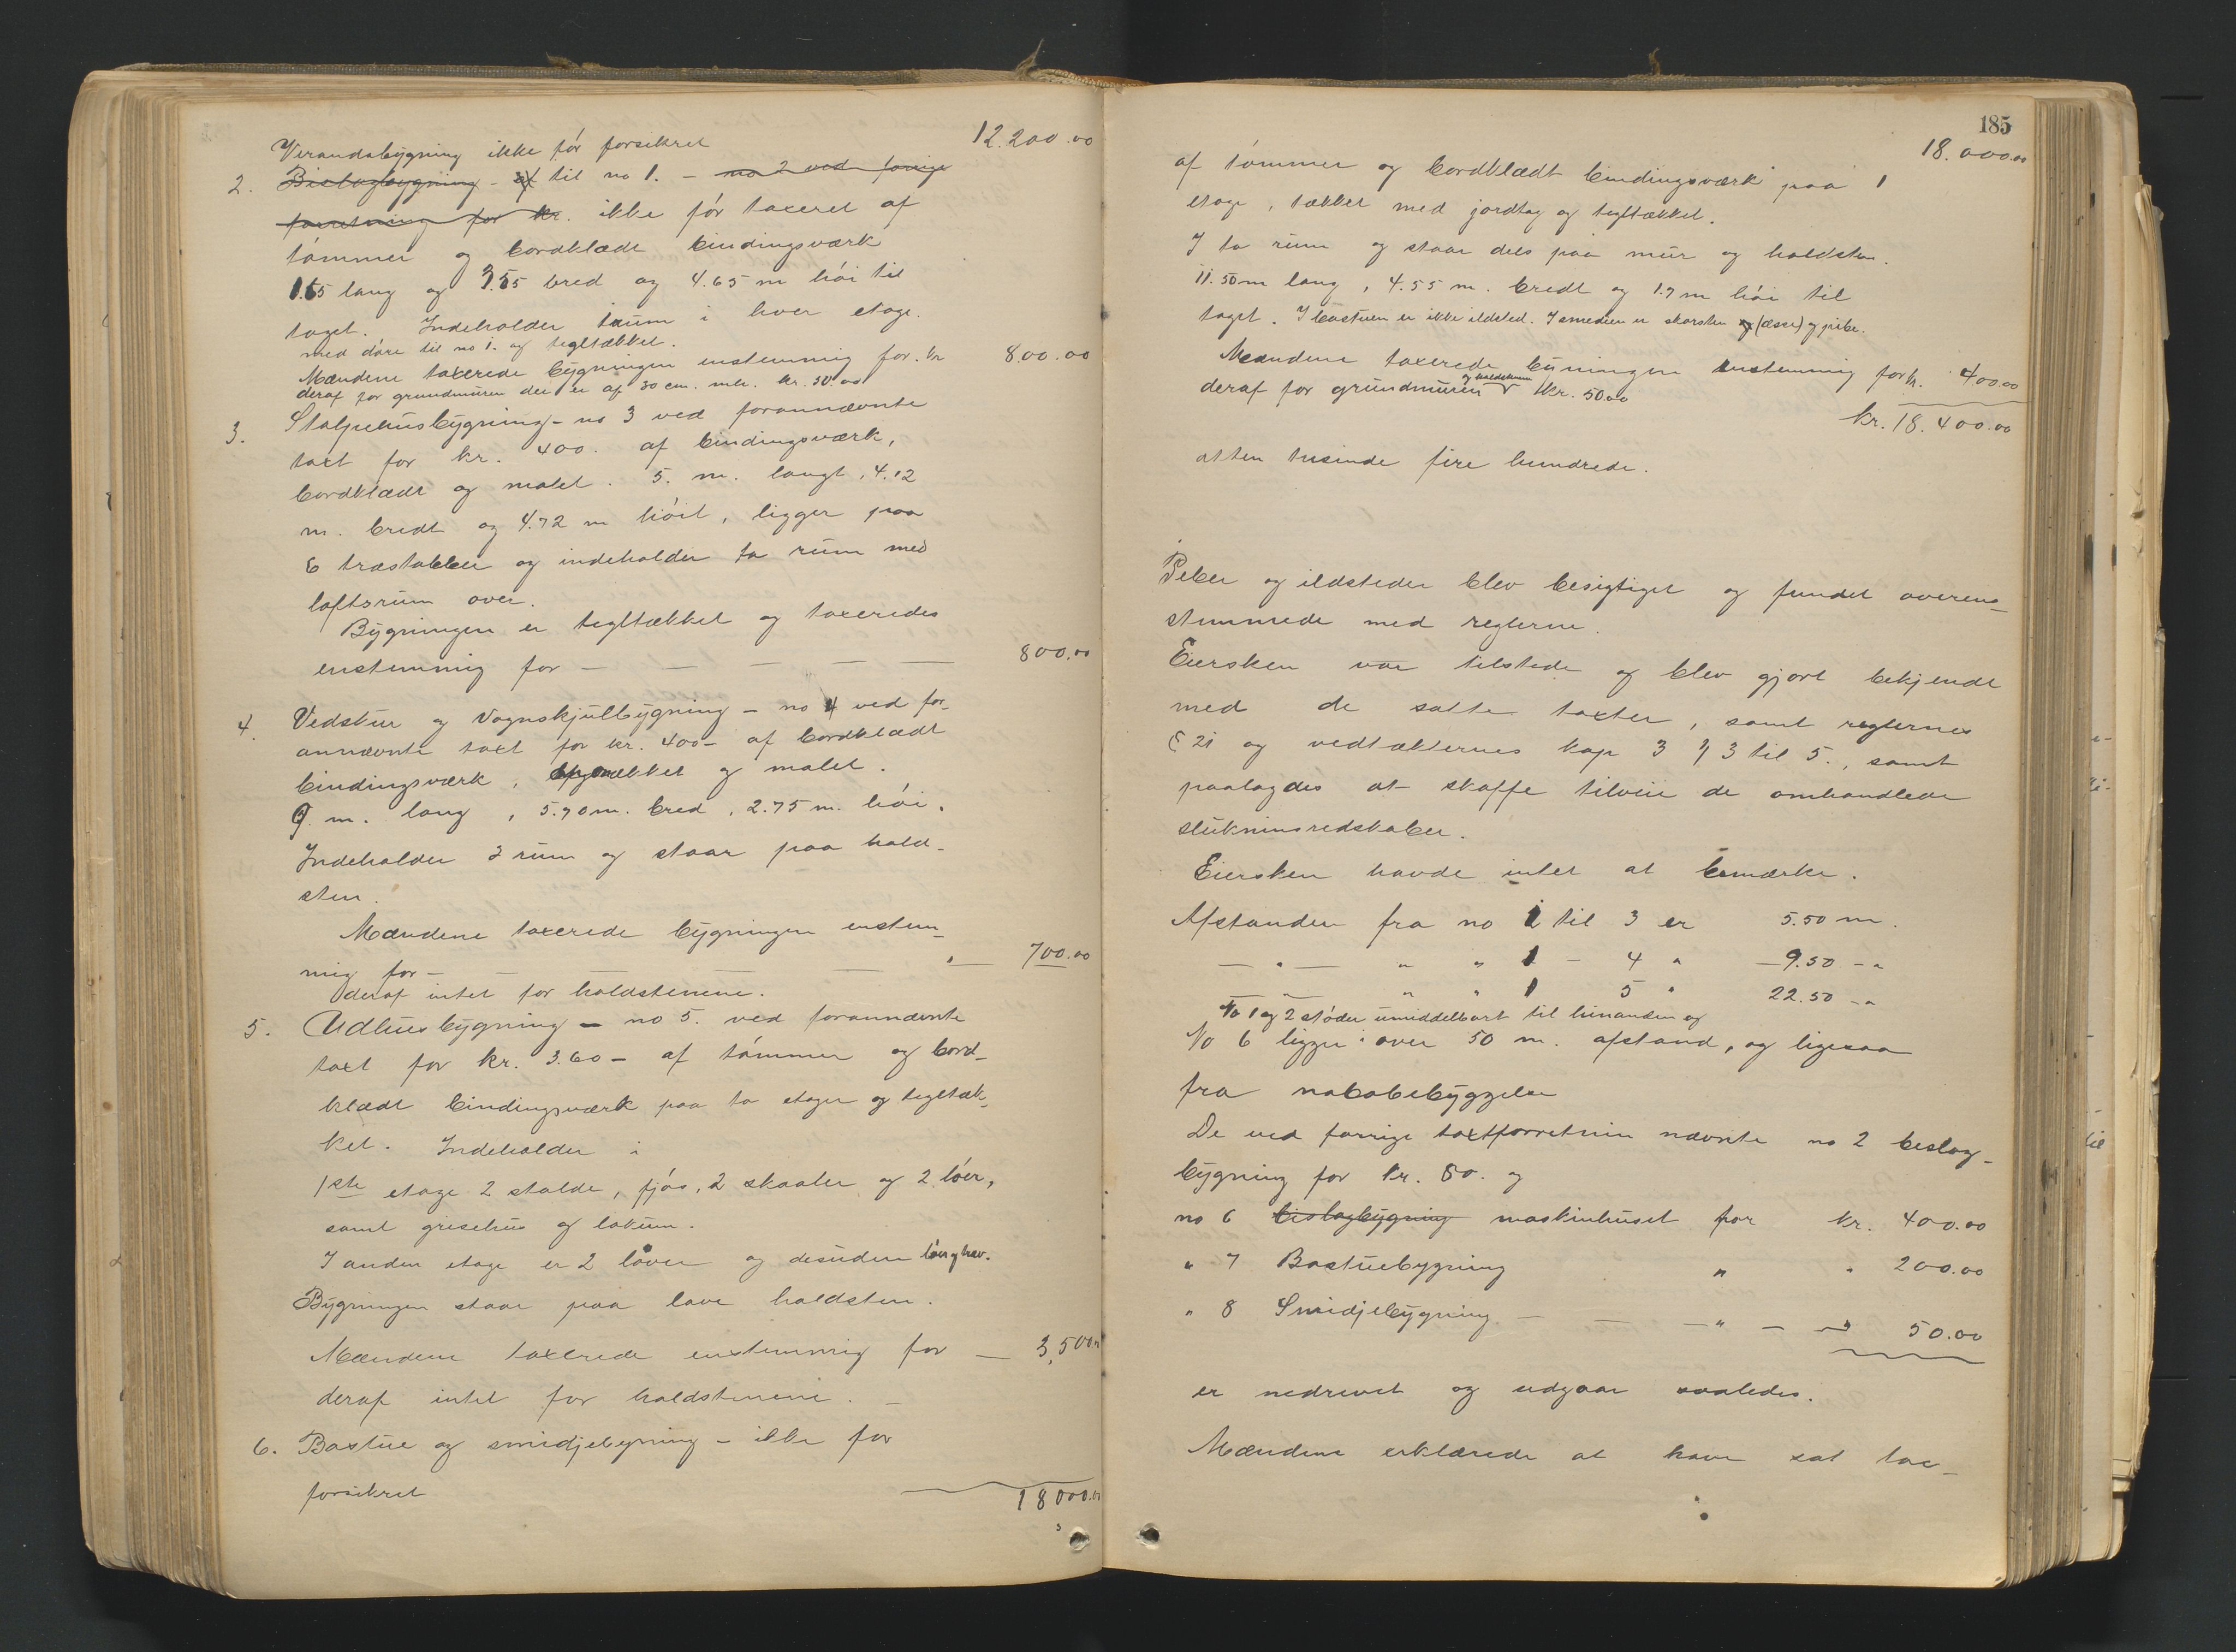 Verandabygning ikke før forsikret 12.200.00
2. Bislagbygning - af til no 1. - no 2 ved forrige
forretning for kr. ikke før taxeret af
tømmer og bordklædt bindingsværk
1.65 lang og 3.55 bred og 4.65 m høi til
taget. Indeholder 1 rum i hver etage.
med døre til no 1. og tegltækket.
Mændene taxerede bygningen enstemmig for kr 800.00
deraf for grundmuren der er af 30 cm. kr. 30.00
3. Stolpehusbygning - no 3 ved forannævnte
taxt for kr. 400. af bindingsværk,
bordklædt og malet. 5. m. langt, 4.12
m. bredt og 4.72 m høit, ligger paa
6 træstabber og indeholder to rum med
loftsrum over.
Bygningen er tegltækket og taxeredes
enstemmig for — — — — — 800.00
4. Vedskur og Vognskjulbygning - no 4 ved for-
annævnte taxt for kr. 400 - af bordklædt
bindingsværk, tækket og malet.
9. m. lang, 5.70 m. bred, 2.75 m. høi.
Indeholder 2 rum og staar paa hold-
sten.
Mændene taxerede bygningen enstem-
mig for - — — — — 700.00
deraf intet for holdstenene.
5. Udhusbygning - no 5. ved forannævnte
taxt for kr. 3.60 - af tømmer og bord-
klædt bindingsværk paa to etager og tegltæk-
ket. Indeholder i
1ste etage 2 stalde, fjøs, 2 skaaler og 2 løer,
samt grisehus og lokum.
I anden etage er 2 løver og desuden
Bygningen staar paa lave holdsten.
Mændene taxerede enstemmig for — 3,500.00
deraf intet for holdstenene. -
6. Bastue og smidjebygning - ikke før
forsikret
18000.00
185
18.000.00
af tømmer og bordklædt bindingsværk paa 1
etage, tækket med jordtag og tegltækket.
I to rum og staar dels paa mur og holdsten.
11.50 m lang, 4.55 m. bredt og 1.7 m høi til
taget. I bastuen er ikke ildsted. I smedien er skorsten (æsse) og pibe.
Mændene taxerede byningen enstemmig for kr. 400.00
og holdstenene
deraf for grundmuren kr. 50.00
kr. 18.400.00
atten tusinde fire hundrede.
Piber og ildsteder blev besigtiget og fundet overens-
stemmede med reglerne.
Eiersken var tilstede og blev gjort bekjendt
med de satte taxter, samt reglernes
§ 21 og vedtækternes kap 3 § 3 til 5., samt
paalagdes at skaffe tilveie de omhandlede
slukninsredskaber.
Eiersken havde intet at bemærke.
Afstanden fra no 1 til 3 er 5.50 m.
— " — " " 1 - 4 " — 9.50 - "
— " — " " 1 5 " 22.50 - "
No 1 og 2 støder umiddelbart til hinanden og
No 6 ligger i over 50 m. afstand, og ligesaa
fra nabobebyggelse
De ved forrige taxtforretnin nævnte no 2 beslag-
bygning for kr. 80. og
no 6 bislagbygning maskinhuset for kr. 400.00
" 7 Bastuebygning " " 200.00
" 8 Smidjebygning — — — " — — " 50.00
er nedrevet og udgaar saaledes.
Mændene erklærede at have sat tax-